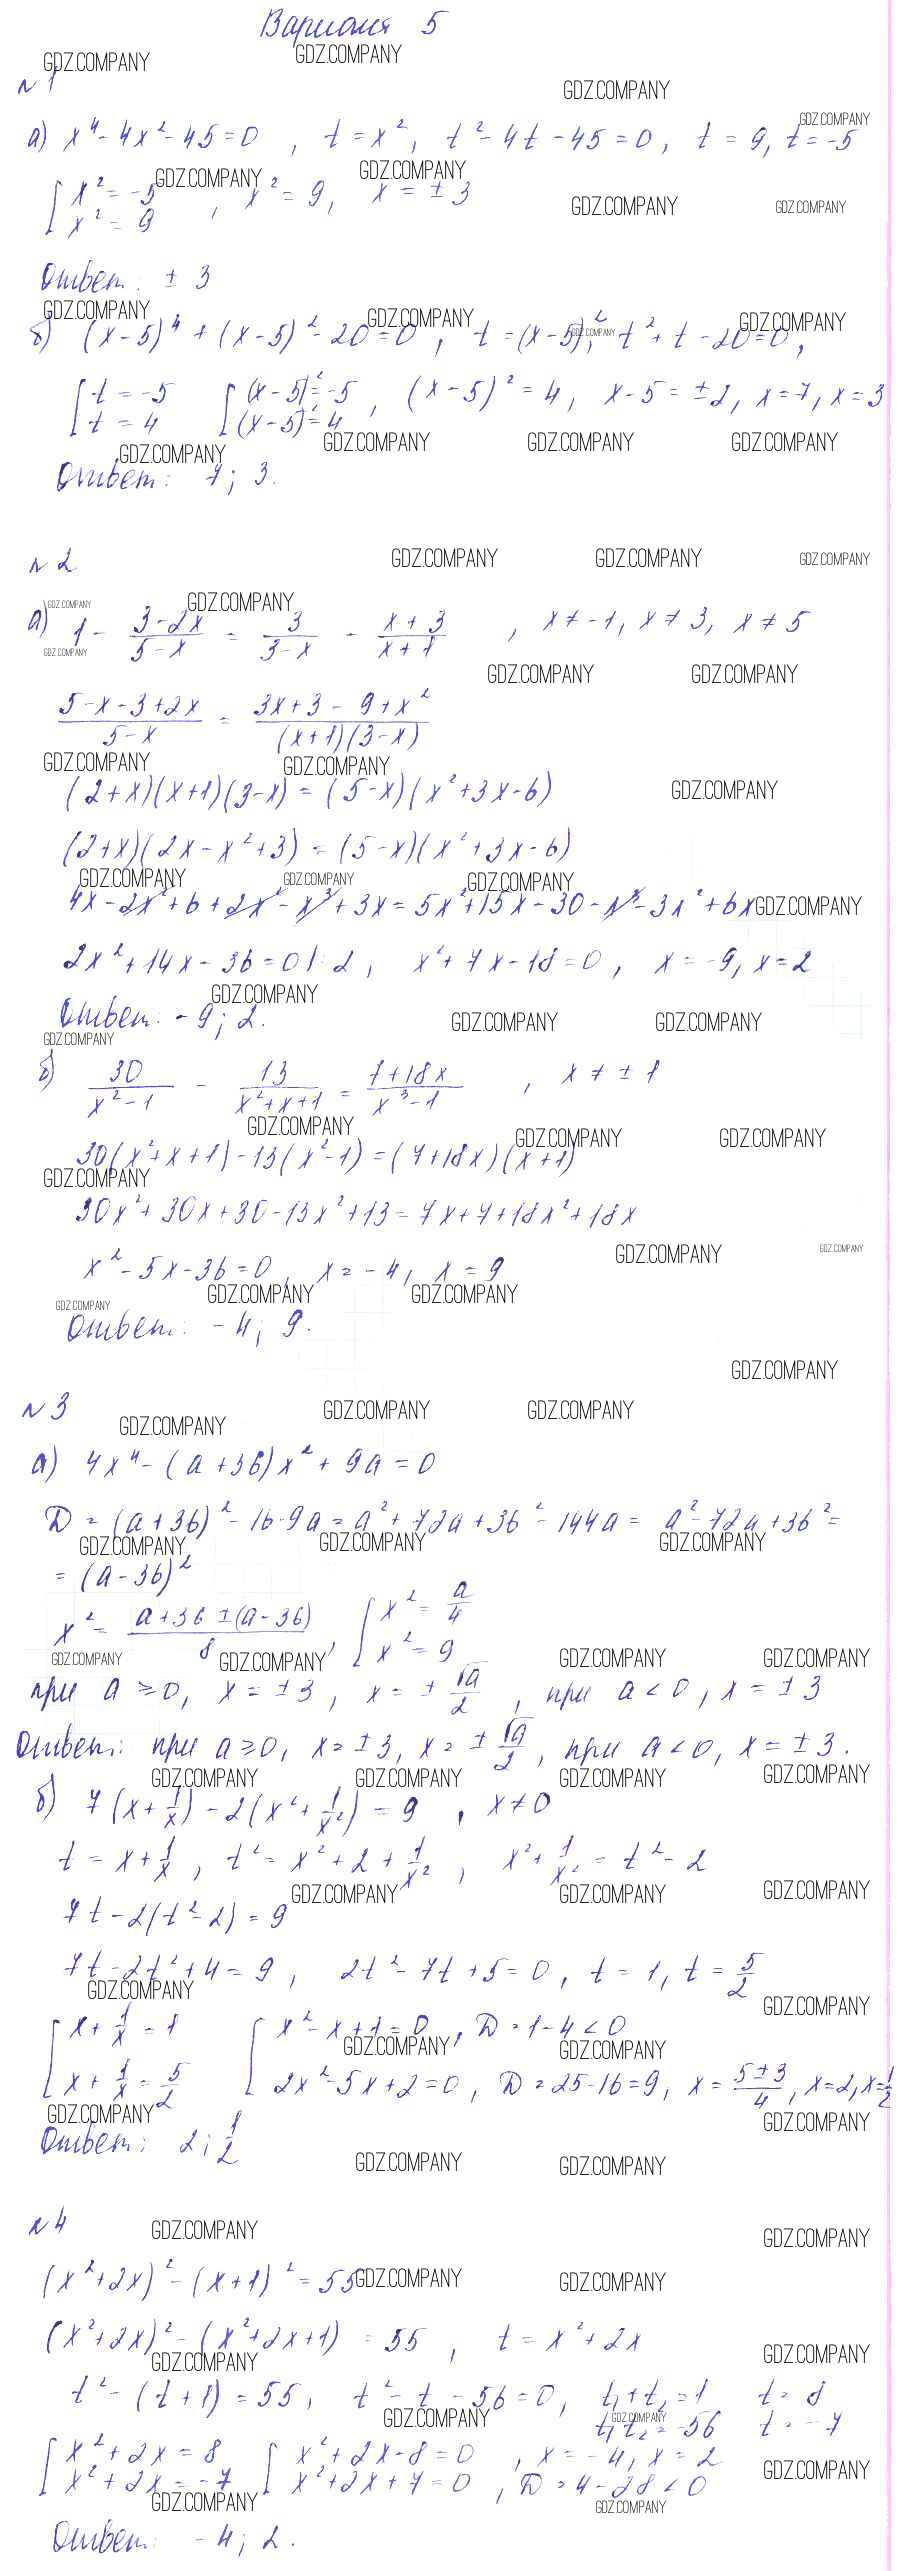 Вариант 5
№ 1
а) x⁴ - 4x² - 45 = 0, t = x², t² - 4t - 45 = 0, t = 9, t = -5
[ x² = -5
x² = 9 , x² = 9, x = ± 3
Ответ: ± 3
б) (x - 5)⁴ + (x - 5)² - 20 = 0, t = (x - 5)², t² + t - 20 = 0,
[ t = -5 [ (x - 5)² = -5
t = 4 (x - 5)² = 4 , (x - 5)² = 4, x - 5 = ± 2, x = 7, x = 3
Ответ: 7; 3.
№ 2
а) 1 - (3 - 2x)/(5 - x) = 3/(3 - x) - (x + 3)/(x + 1), x ≠ -1, x ≠ 3, x ≠ 5
(5 - x - 3 + 2x)/(5 - x) = (3x + 3 - 9 + x²)/((x + 1)(3 - x))
(2 + x)(x + 1)(3 - x) = (5 - x)(x² + 3x - 6)
(2 + x)(2x - x² + 3) = (5 - x)(x² + 3x - 6)
4x - 2x² + 6 + 2x² - x³ + 3x = 5x² + 15x - 30 - x³ - 3x² + 6x
2x² + 14x - 36 = 0 |: 2, x² + 7x - 18 = 0, x = -9, x = 2
Ответ: -9; 2.
б) 30/(x² - 1) - 13/(x² + x + 1) = (7 + 18x)/(x³ - 1), x ≠ ± 1
30(x² + x + 1) - 13(x² - 1) = (7 + 18x)(x + 1)
30x² + 30x + 30 - 13x² + 13 = 7x + 7 + 18x² + 18x
x² - 5x - 36 = 0, x = -4, x = 9
Ответ: -4; 9.
№ 3
а) 4x⁴ - (a + 36)x² + 9a = 0
D = (a + 36)² - 16·9a = a² + 72a + 36² - 144a = a² - 72a + 36² =
= (a - 36)²
x² = (a + 36 ± (a - 36))/8, [ x² = a/4
x² = 9
при a ≥ 0, x = ± 3, x = ± √a/2, при a < 0, x = ± 3
Ответ: при a ≥ 0, x = ± 3, x = ± √a/2, при a < 0, x = ± 3.
б) 7(x + 1/x) - 2(x² + 1/x²) = 9, x ≠ 0
t = x + 1/x, t² = x² + 2 + 1/x², x² + 1/x² = t² - 2
7t - 2(t² - 2) = 9
7t - 2t² + 4 = 9, 2t² - 7t + 5 = 0, t = 1, t = 5/2
[ x + 1/x = 1 [ x² - x + 1 = 0, D = 1 - 4 < 0
x + 1/x = 5/2 2x² - 5x + 2 = 0, D = 25 - 16 = 9, x = (5 ± 3)/4, x = 2, x = 1/2
Ответ: 2; 1/2
№ 4
(x² + 2x)² - (x + 1)² = 55
(x² + 2x)² - (x² + 2x + 1) = 55, t = x² + 2x
t² - (t + 1) = 55, t² - t - 56 = 0, t₁ + t₂ = 1 t = 8
t₁t₂ = -56 t = -7
[ x² + 2x = 8 [ x² + 2x - 8 = 0, x = -4, x = 2
x² + 2x = -7 x² + 2x + 7 = 0, D = 4 - 28 < 0
Ответ: -4; 2.
GDZ.COMPANY